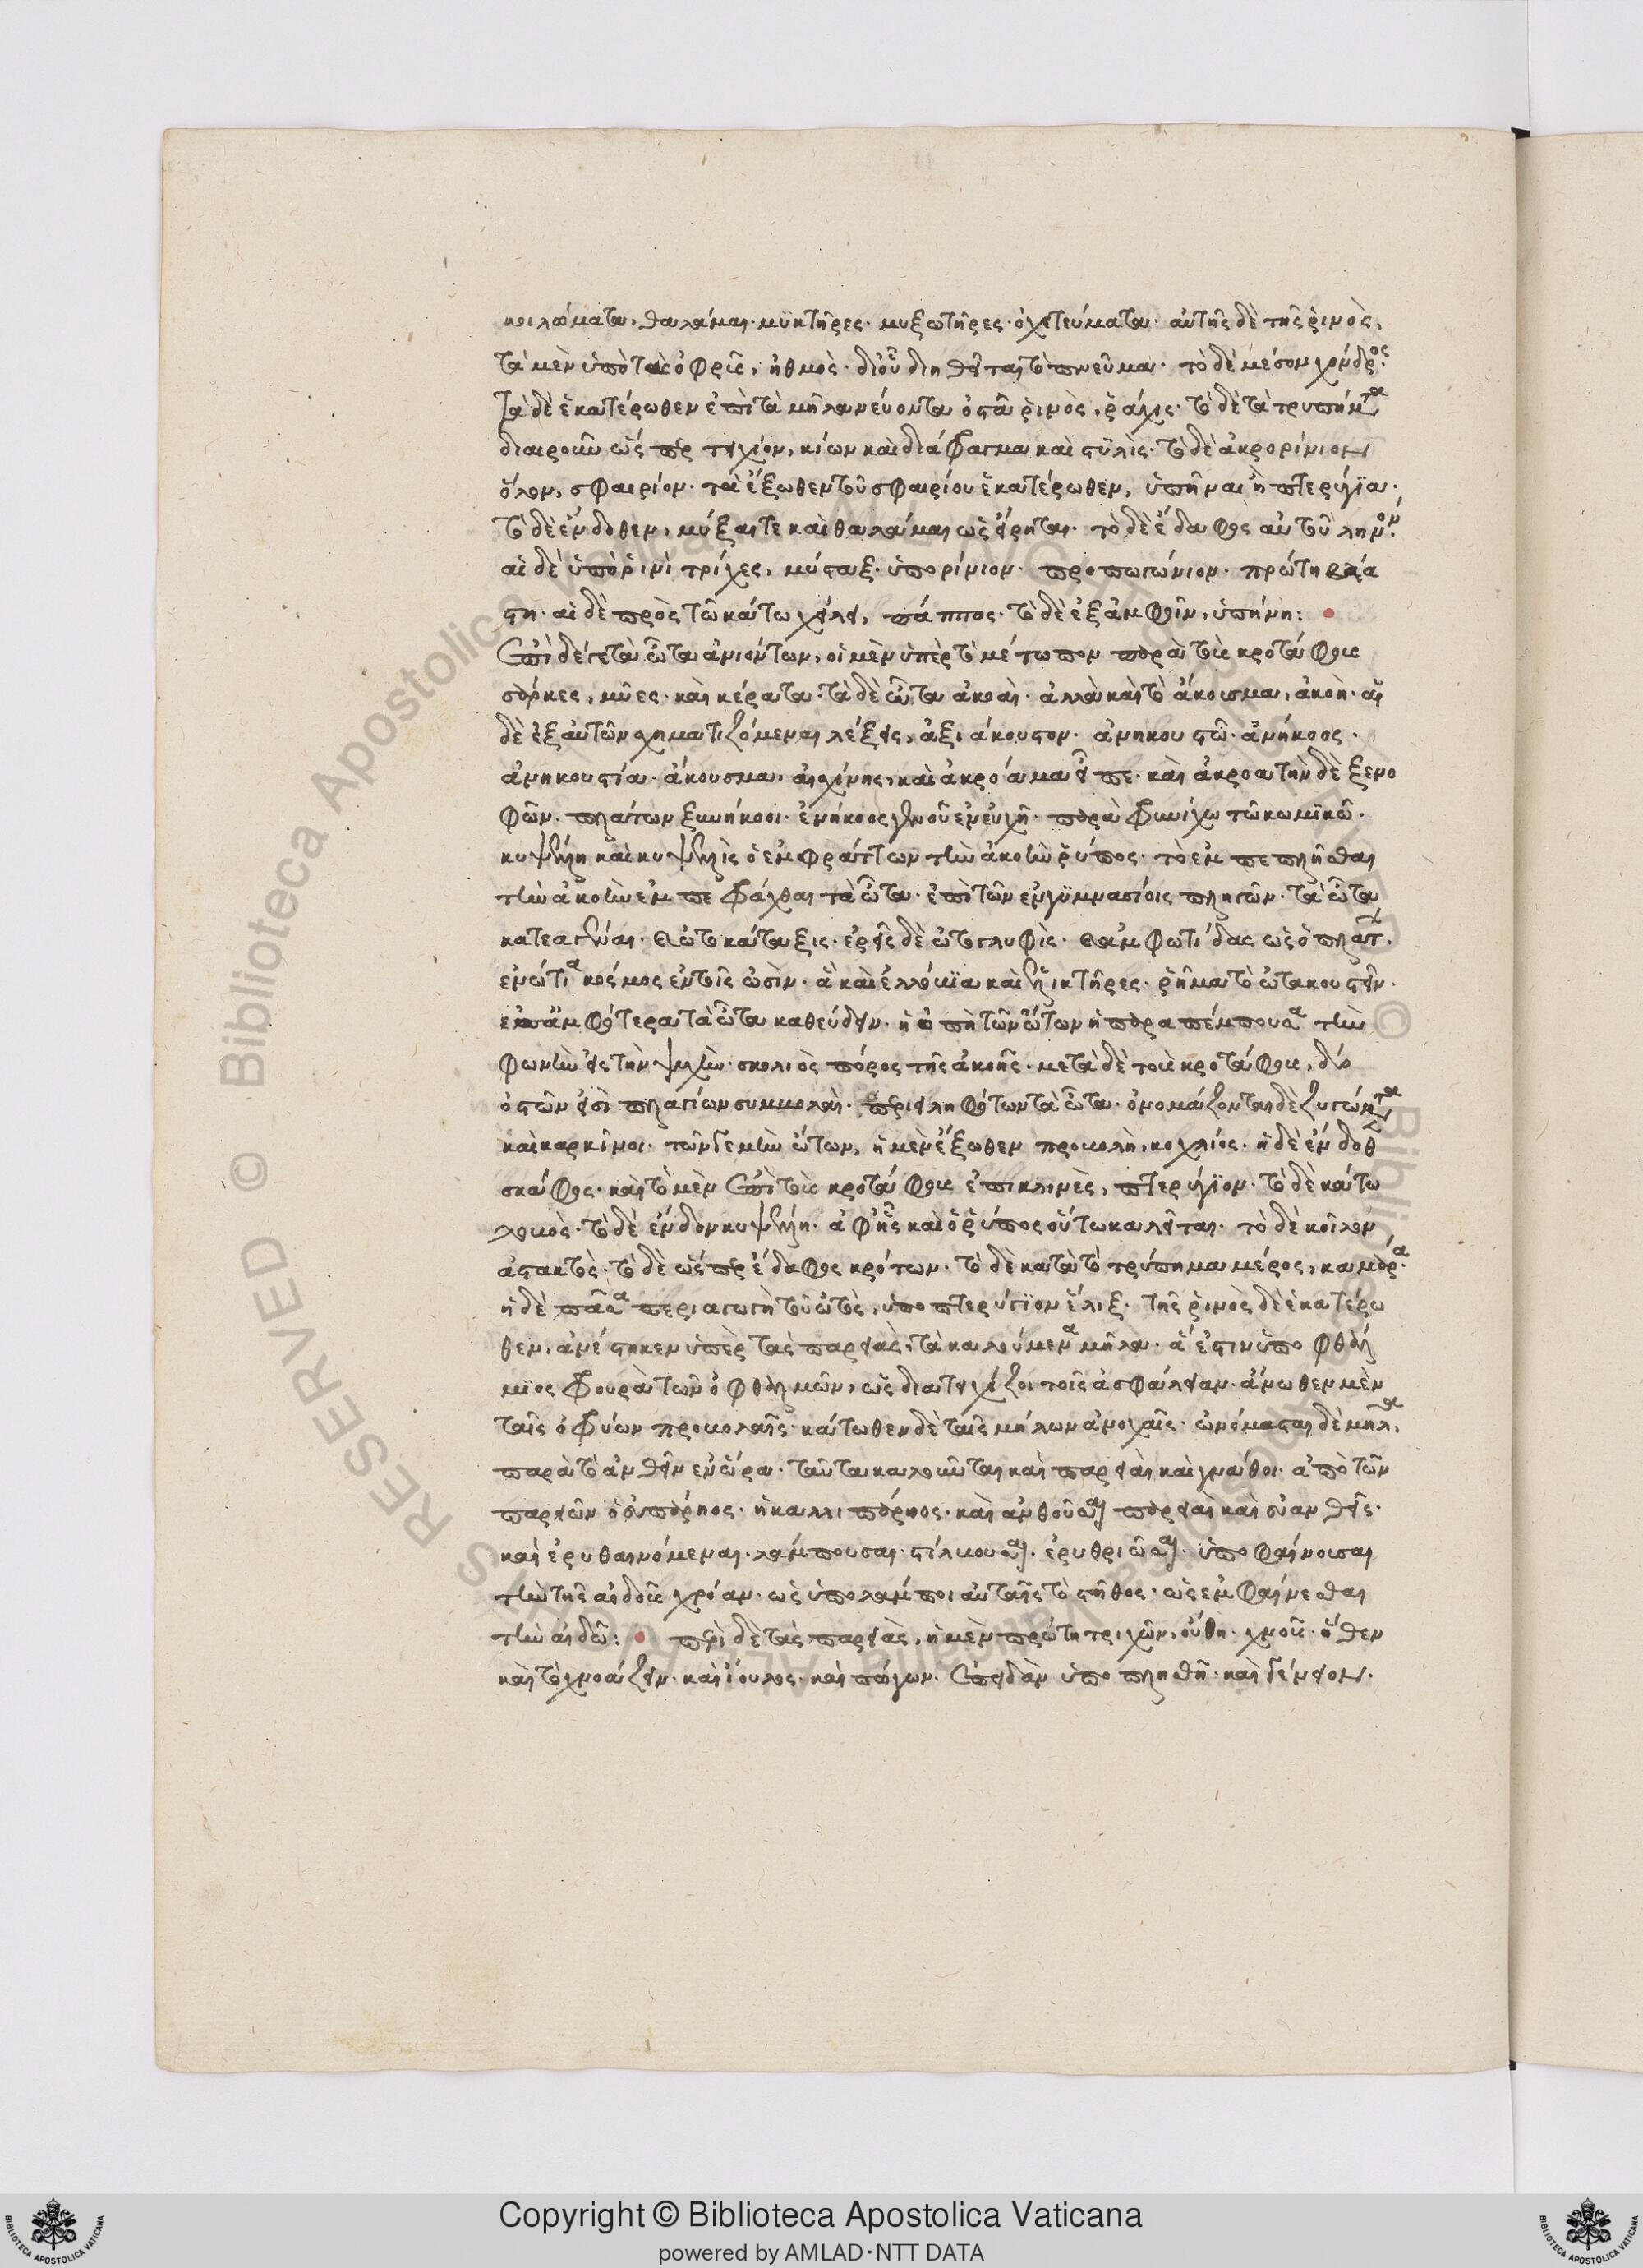 κοιλώματα, θαλάμαι· μϋκτῆρες· μυξωτῆρες· ὀχετεύματα· αὐτῆς δὲ τῆς ῥινὸς,
τὰ μὲν ὑπὸ τὰς ὀφρῦς, ἠθμὸς· δι οὗ διηθεῖται τὸ πνεῦμα· τὸ δὲ μέσον χόνδρος·
τὰ δὲ ἑκατέρωθεν ἐπὶ τὰ μῆλα νεύοντα ὀστᾶ ῥινὸς, ῥάχις· τὸ δὲ τὰ τρυπήματα
διαιροῦν ὥσπερ τειχίον, κίων καὶ διάφραγμα καὶ στϋλὶς· τὸ δὲ ἀκρορίνιον
ὅλον, σφαιρίον· τὰ ἔξωθεν τοῦ σφαιρίου ἑκατέρωθεν, ὑπῆναι ἢ πτερύγϊα·
τὸ δὲ ἔνδοθεν, μύξαι τε καὶ θαλάμαι ὡς εἴρηται· τὸ δὲ ἔδαφος αὐτοῦ
αἱ δὲ ὑπὸ ῥινὶ τρίχες, μύσταξ· ὑπορίνιον· προπωγώνιον· πρώτη βλά
στη· αἱ δὲ πρὸς τῶ κάτω χείλει, πάππος· τὸ δὲ ἐξ ἀμφοῖν, ὑπήνη:
ἐπὶ δέ γε τὰ ὦτα ἀνιόντων, οἱ μὲν ὑπὲρ τὸ μέτωπον παρὰ τοὺς κροτάφους
σάρκες, μῦες· καὶ κέρατα· τὰ δὲ ὦτα ἀκοαὶ· ἀλλὰ καὶ τὸ ἄκουσμα, ἀκοὴ· αἱ
δὲ ἐξ αὐτῶν σχηματιζόμεναι λέξεις, ἀξιάκουστον· ἀνηκουστῶ· ἀνήκοος·
ἀνηκουστία· ἄκουσμα, αἰσχίνης, καὶ ἀκρόαμα εἶπε· καὶ ἀκροατὴν δὲ ξενο
φῶν· πλάτων ξυνήκοοι· ἐνήκοος γενοῦ ἐν εὐχῆ· παρὰ φρυνίχω τῶ κωμϊκῶ·
κυψέλη καὶ κυψελὶς ὁ ἐμφράττων τὴν ἀκοὴν ῥύπος· τὸ ἐμπεπλῆσθαι
τὴν ἀκοὴν ἐμπεφράχθαι τὰ ὦτα· ἐπὶ τῶν ἐν γϋμνασίοις πληγῶν· τὰ ὦτα
κατεαγέναι· ὠτοκάταξις· ἐρεῖς δὲ ὠτογλυφὶς· ἀμφωτίδας ὡς ὁ πλάτ·
ἐνώτια κόσμος ἐν τοῖς ὠσὶν· ἃ καὶ ἐλλόβϊα καὶ ἑλικτῆρες· ῥῆμα τὸ ὠτακουστεῖν·
ἐπ ἀμφότερα τὰ ὦτα καθεύδειν· ἡ ὀπὴ τῶν ὤτων ἡ παραπέμπουσα τὴν
φωνὴν εἰς τὴν ψυχὴν· σκολιὸς πόρος τῆς ἀκοῆς· μετὰ δὲ τοὺς κροτάφους, δύο
ὀστῶν εἰσὶ πλαγίων συμβολαὶ· περιειληφότων τὰ ὦτα· ὀνομάζονται δὲ ζυγώματα
καὶ καρκίνοι· τῶν γεμὴν ὤτων, ἡ μὲν ἔξωθεν προβολὴ, κοχλίος· ἡ δὲ ἔνδοθεν
σκάφος· καὶ τὸ μὲν ἐπὶ τοὺς κροτάφους ἐπικλινὲς, πτερύγϊον· τὸ δὲ κάτω
λοβὸς· τὸ δὲ ἔνδον κυψέλη· ἀφ ἧς καὶ ὁ ῥύπος οὕτω καλεῖται· τὸ δὲ κοῖλον
ἀστακὸς· τὸ δὲ ὥσπερ ἔδαφος κρότων· τὸ δὲ κατὰ τὸ τρύπημα μέρος, καμάρα·
ἡ δὲ πᾶσα περιαγωγὴ τοῦ ὠτὸς, ὑποπτερύγϊον ἕλιξ· τῆς ῥινὸς δὲ ἑκατέρω
θεν, ἀνέστηκεν ὑπὲρ τὰς παρειὰς, τὰ καλούμενα μῆλα· ἅ ἐστιν ὑποφθάλ
μϊος φρουρὰ τῶν ὀφθαλμῶν, ὡς διατειχίζοι τοῖς ἀσφάλειαν· ἄνωθεν μὲν
ταῖς ὀφρύων προβολαῖς· κάτωθεν δὲ ταῖς μήλων ἀνοχαῖς· ὠνόμασται δὲ μῆλα,
παρὰ τὸ ἀνθεῖν ἐν ὥρα· ταῦτα καλοῦνται καὶ παρειαὶ καὶ γνάθοι· ἀπὸ τῶν
παρειῶν ὁ εὐπάρηος· ἡ καλλιπάρηος· καὶ ἀνθοῦσαι παρειαὶ καὶ εὐανθεῖς·
καὶ ἐρυθαινόμεναι· λάμπουσαι· στίλβουσαι· ἐρυθριῶσαι· ὑποφαίνουσαι
τὴν τῆς αἰδοῦς χρόαν· ὡς ὑπολάμποι αὐταῖς τὸ στῆθος· ὡς ἐμφαίνεσθαι
τὴν αἰδῶ: περὶ δὲ τὰς παρειὰς, ἡ μὲν πρώτη τριχῶν, ἄνθη· χνοῦς· ὅθεν
καὶ τὸ χνοάζειν· καὶ ἴουλος· καὶ πώγων· ἐπειδὰν ὑποπλησθῆ· καὶ γένειον·